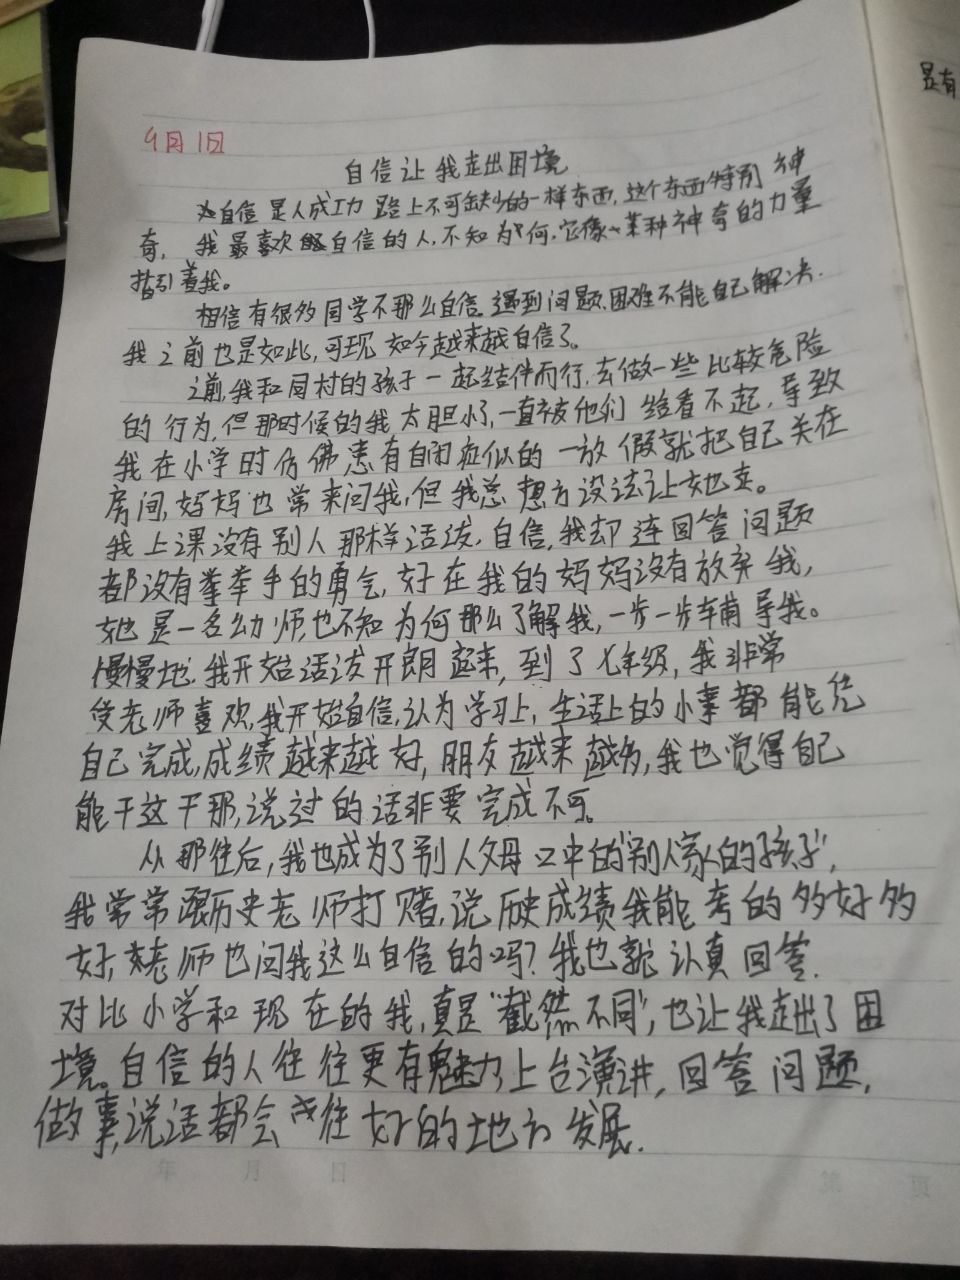 是有
9月1日
自信让我走出困境
自信是人成功路上不可缺少的一样东西,这个东西特别神
奇,我最喜欢自信的人,不知为何,它像某种神奇的力量
指引着我。
相信有很多同学不那么自信。遇到问题、困难不能自己解决.
我之前也是如此,可现如今越来越自信了。
之前,我和同村的孩子一起结伴而行,去做一些比较危险
的行为,但那时候的我太胆小了,一直被他们给看不起,导致
我在小学时仿佛患有自闭症似的一放假就把自己关在
房间,妈妈也常来问我,但我总想方设法让她走。
我上课没有别人那样活泼,自信,我却连回答问题
都没有举举手的勇气,好在我的妈妈没有放弃我,
她是一名幼师,也不知为何那么了解我,一步一步辅导我。
慢慢地.我开始活泼开朗起来,到了七年级,我非常
受老师喜欢,我开始自信,认为学习上,生活上的小事都能凭
自己完成,成绩越来越好,朋友越来越多,我也觉得自己
能干这干那,说过的话非要完成不可。
从那往后,我也成为了别人父母口中的"别人家的孩子",
我常常跟历史老师打赌,说历史成绩我能考的多好多
好,老师也问我这么自信的吗?我也就认真回答.
对比小学和现在的我,真是"截然不同",也让我走出了困
境。自信的人往往更有魅力,上台演讲,回答问题,
做事,说话都会往好的地方发展.
年 月 日 第 页